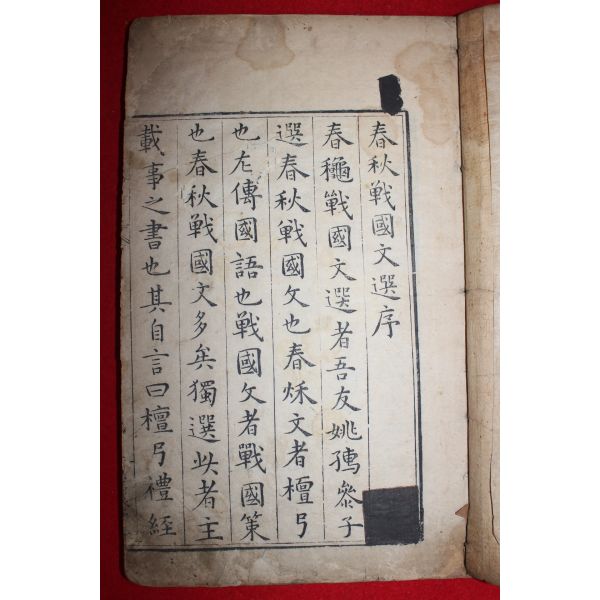 春秋戰國文選序
春龝戰國文選者吾友姚參子
選春秋戰國文也春秌文者檀弓
也左傳國語也戰國文者戰國策
也春秋戰國文多矣獨選此者主
載事之書也其自言曰檀弓禮經